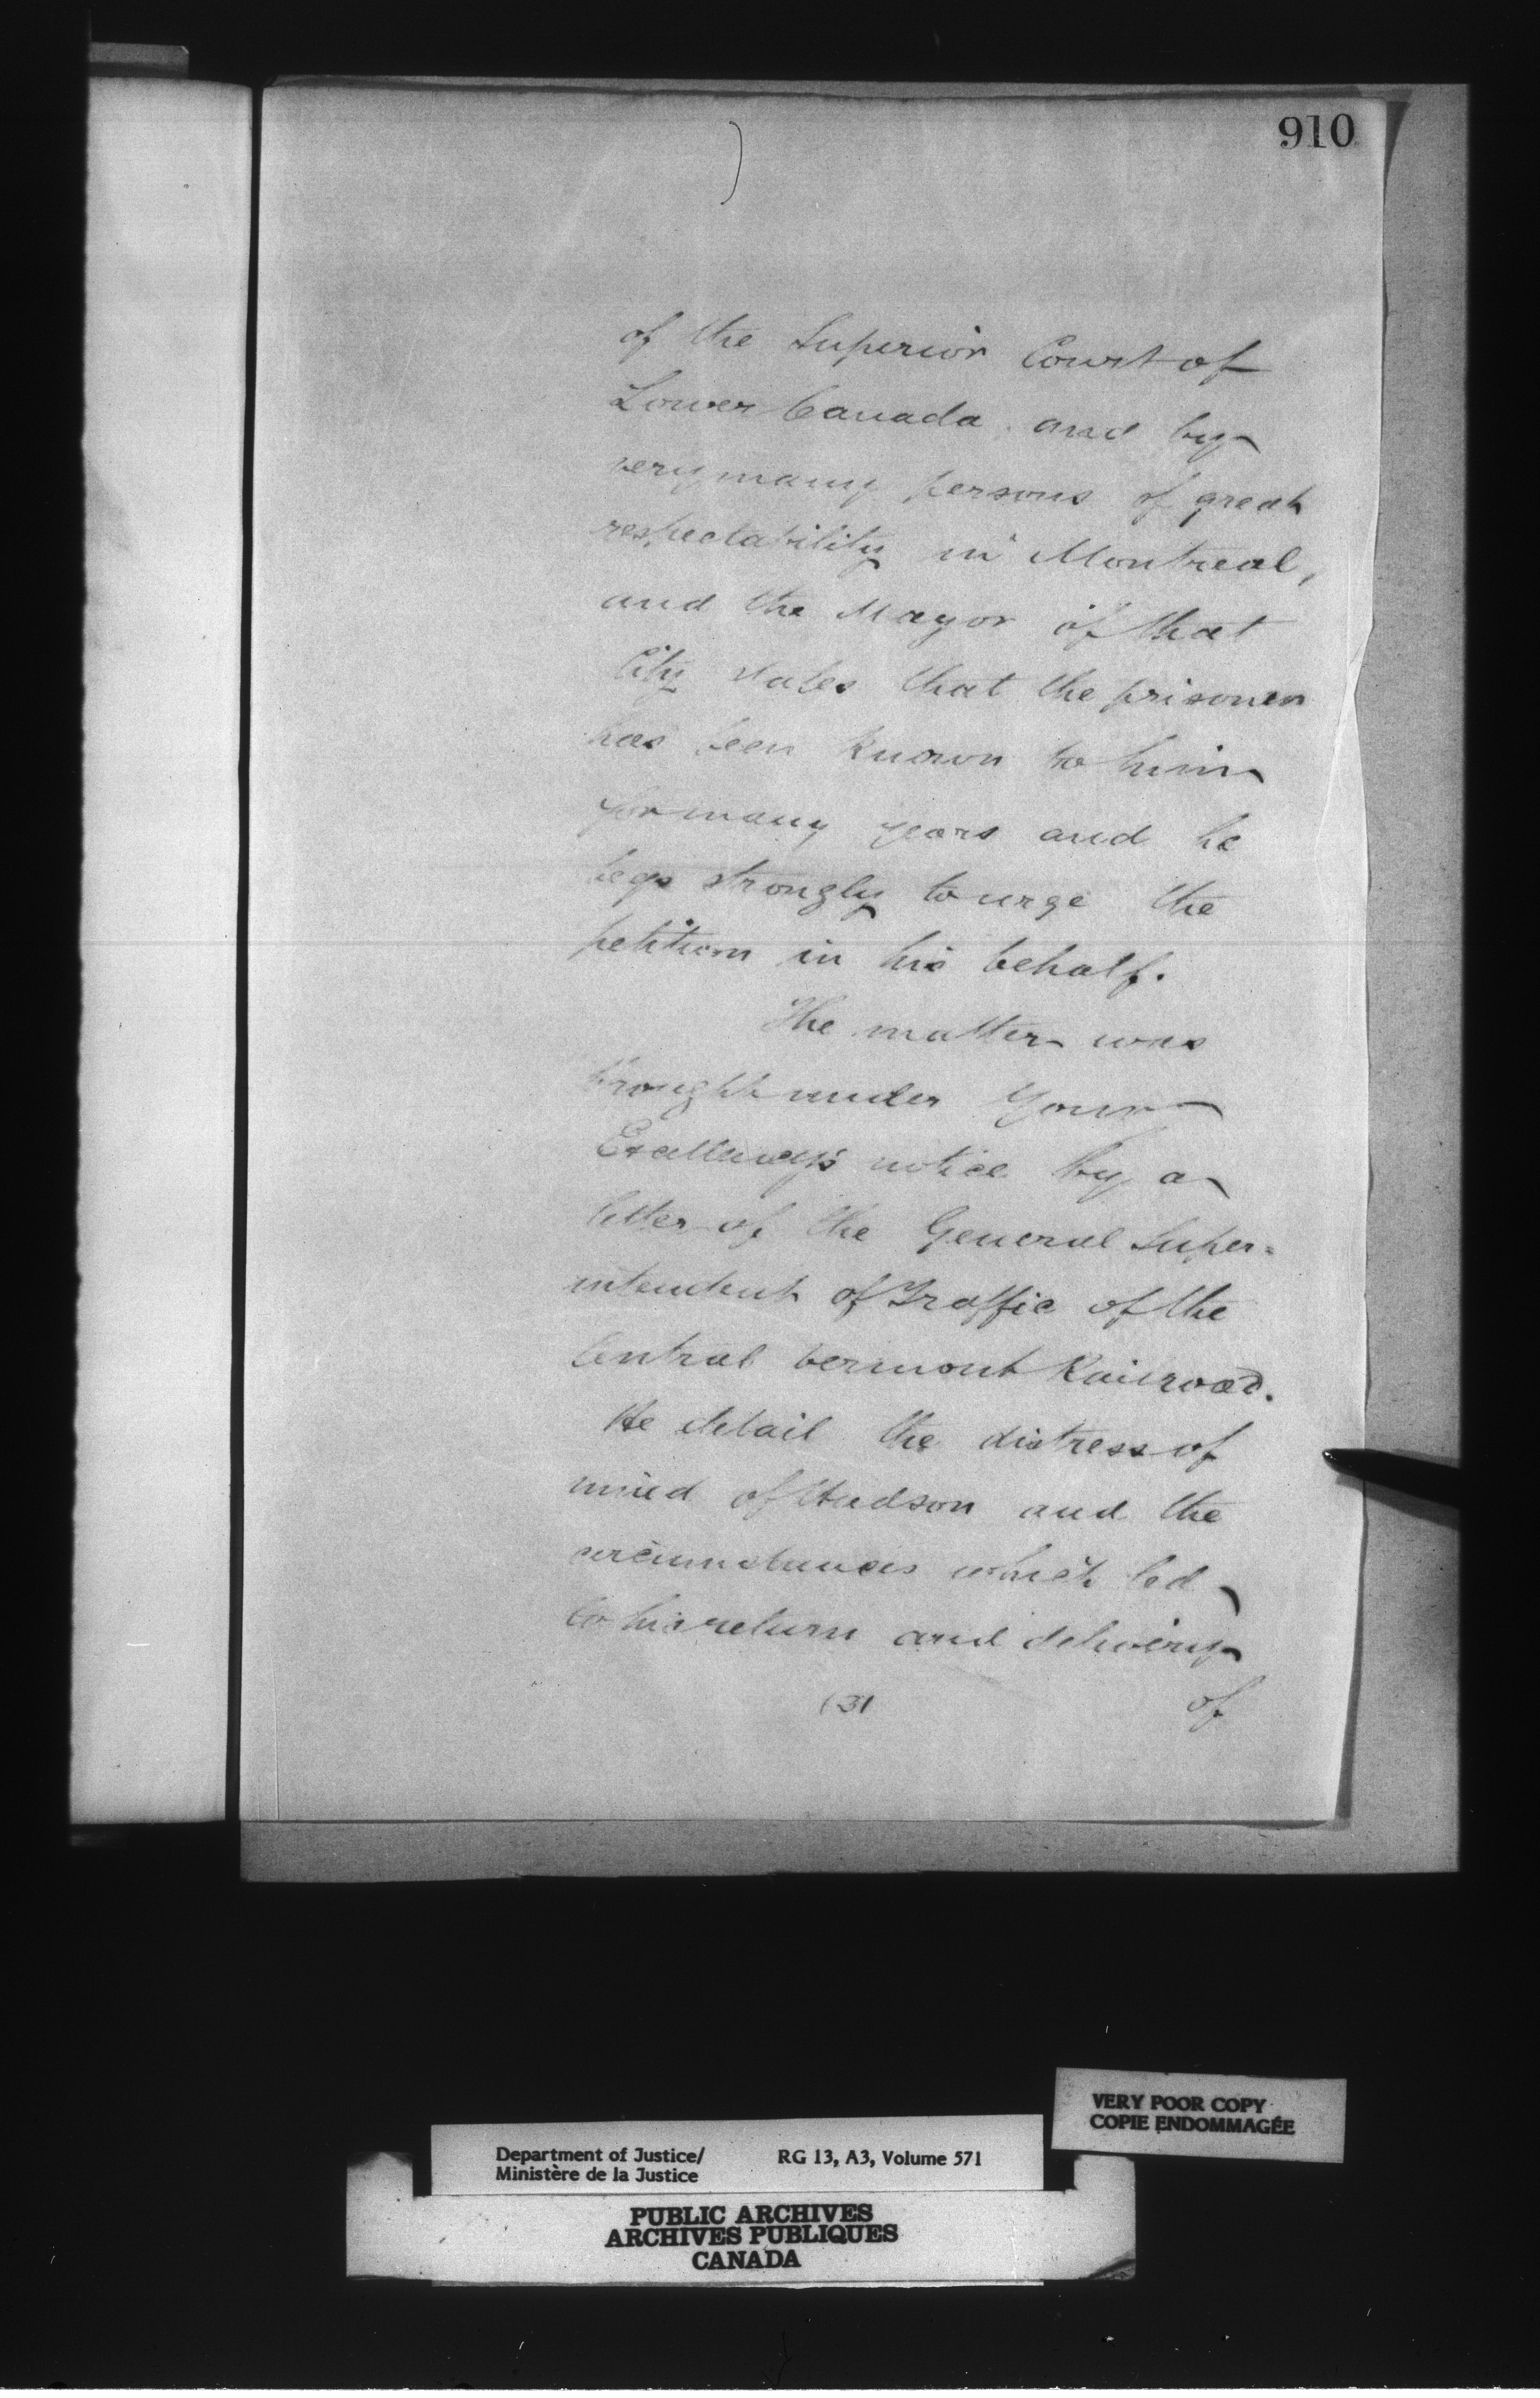 910
of the Superior Court of
Lower Canada and by
very many persons of great
respectability in Montreal,
and the Mayor of that
City states that the prisoner
has been known to him
for many years and he
begs strongly to urge the
petition in his behalf.
The matter was
brought under Your
Excellency's notice by a
letter of the General Super=
intendent of Traffic of the
Central Vermont Railroad.
He detail the distress of
mind of Hudson and the
circumstances which led
to his return and delivery
(3) of
VERY POOR COPY
COPIE ENDOMMAGÉE
Department of Justice/ RG 13, A3, Volume 571
Ministère de la Justice
PUBLIC ARCHIVES
ARCHIVES PUBLIQUES
CANADA